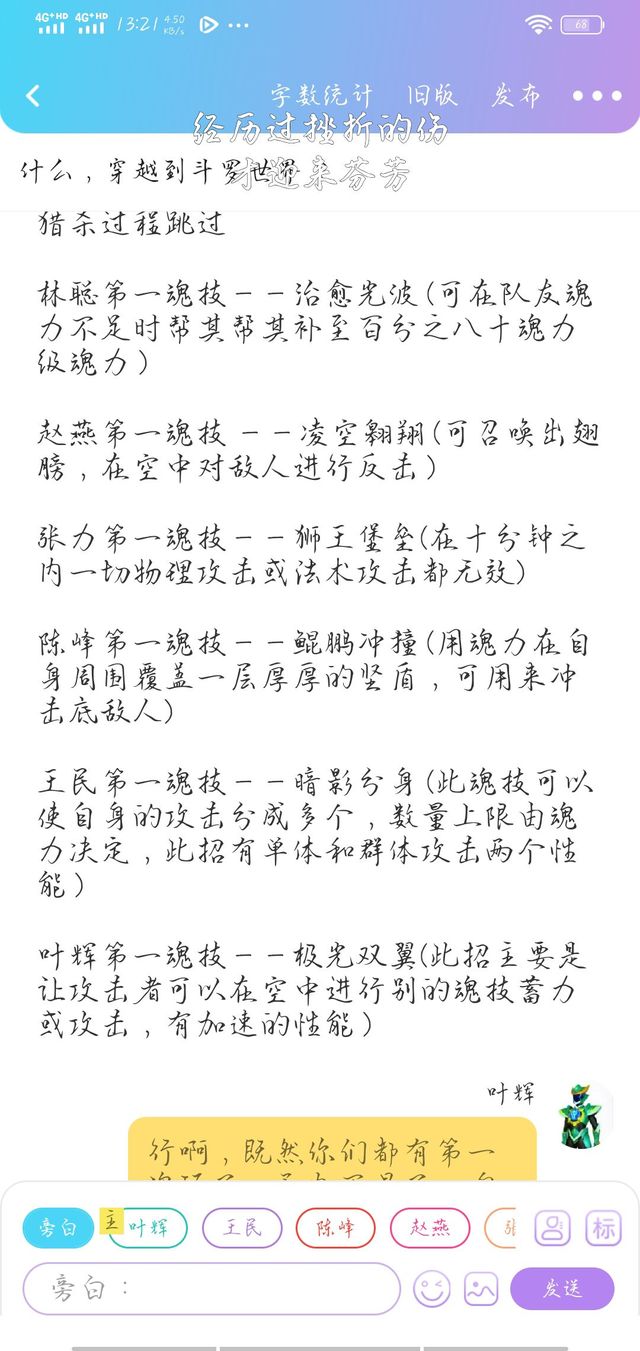 4G+HD 4G+HD 13:21 4.50 KB/s 68
字数统计 旧版 发布
经历过挫折的伤
才迎来芬芳
什么，穿越到斗罗世界
猎杀过程跳过
林聪第一魂技－－治愈光波(可在队友魂
力不足时帮其帮其补至百分之八十魂力
级魂力)
赵燕第一魂技 －－凌空翱翔(可召唤出翅
膀，在空中对敌人进行反击)
张力第一魂技－－狮王堡垒(在十分钟之
内一切物理攻击或法术攻击都无效)
陈峰第一魂技－－鲲鹏冲撞(用魂力在自
身周围覆盖一层厚厚的坚盾，可用来冲
击底敌人)
王民第一魂技－－暗影分身(此魂技可以
使自身的攻击分成多个，数量上限由魂
力决定，此招有单体和群体攻击两个性
能)
叶辉第一魂技－－极光双翼(此招主要是
让攻击者可以在空中进行别的魂技蓄力
或攻击，有加速的性能)
叶辉
行啊，既然你们都有第一
旁白 主 叶辉 王民 陈峰 赵燕 张 标
旁白： 发送